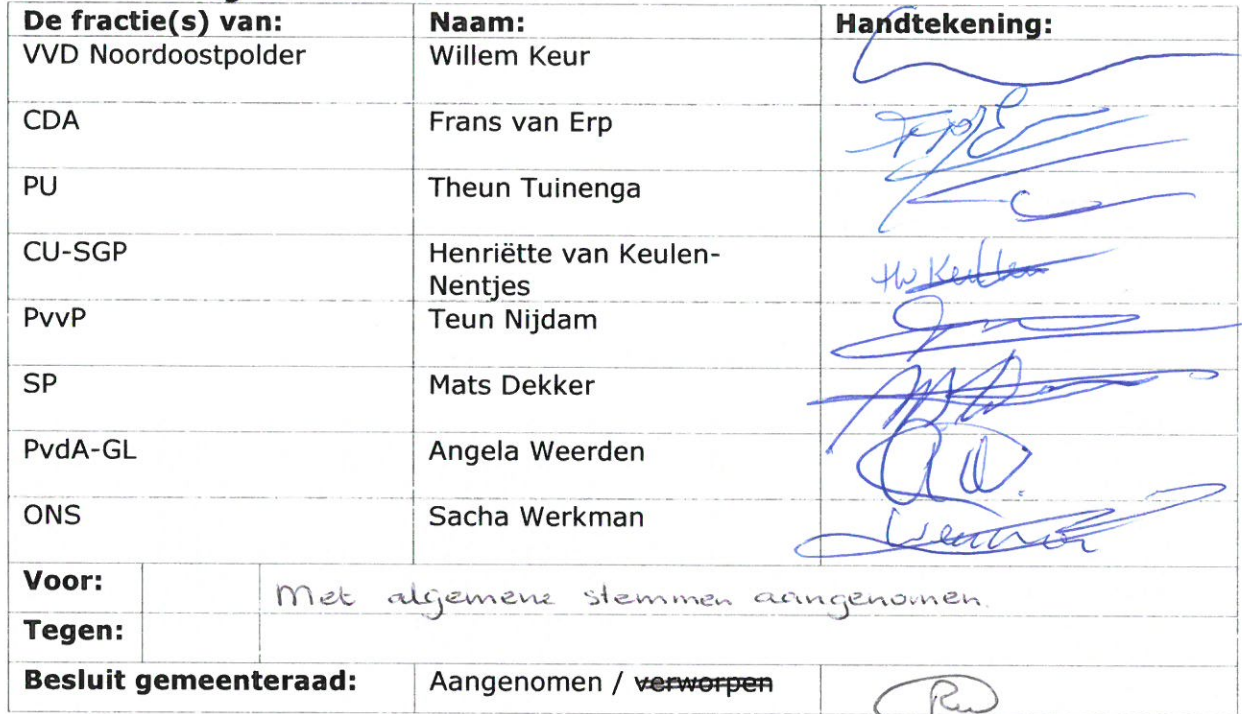 De fractie(s) van: Naam: Handtekening:
VVD Noordoostpolder Willem Keur
CDA Frans van Erp
PU Theun Tuinenga
CU-SGP Henriëtte van Keulen-
Nentjes
PvvP Teun Nijdam
SP Mats Dekker
PvdA-GL Angela Weerden
ONS Sacha Werkman
Voor: Met algemene stemmen aangenomen.
Tegen:
Besluit gemeenteraad: Aangenomen / verworpen